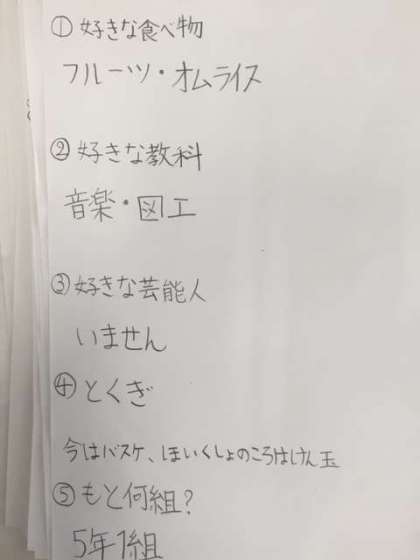 ①好きな食べ物
フルーツ・オムライス
②好きな教科
音楽・図工
③好きな芸能人
いません
④とくぎ
今はバスケ、ほいくしょのころはけん玉
⑤もと何組?
5年1組